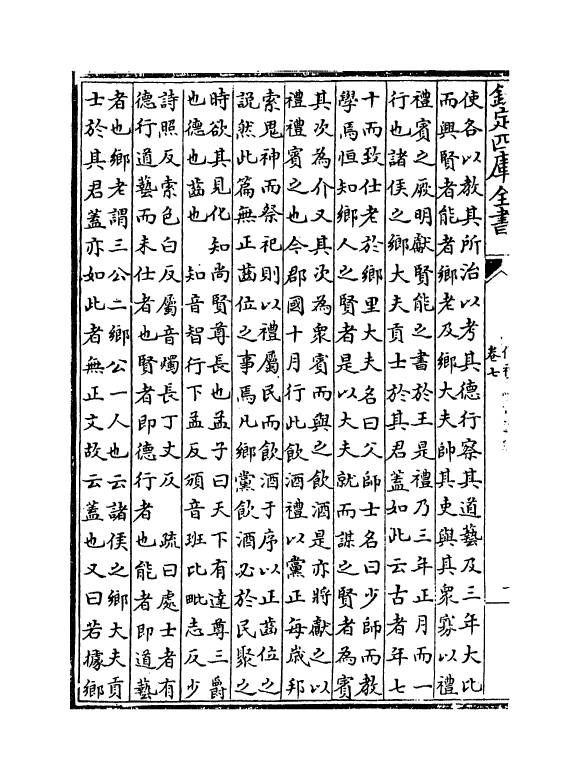 欽定四庫全書
卷七
使各以教其所治以考其德行察其道藝及三年大比
而興賢者能者鄉老及鄉大夫帥其吏與其衆寡以禮
禮賓之厥明獻賢能之書於王是禮乃三年正月而一
行也諸侯之鄉大夫貢士於其君蓋如此云古者年七
十而致仕老於鄉里大夫名曰父師士名曰少師而教
學焉恒知鄉人之賢者是以大夫就而謀之賢者為賓
其次為介又其次為衆賓而與之飲酒是亦將獻之以
禮禮賓之也今郡國十月行此飲酒禮以黨正每歲邦
索鬼神而祭祀則以禮屬民而飲酒于序以正齒位之
說然此篇無正齒位之事焉凡鄉黨飲酒必於民聚之
時欲其見化知尚賢尊長也孟子曰天下有達尊三爵
也德也齒也 知音智行下孟反頒音班比毗志反少
詩照反索色白反屬音燭長丁丈反 疏曰處士者有
德行道藝而未仕者也賢者即德行者也能者即道藝
者也鄉老謂三公二鄉公一人也云諸侯之鄉大夫貢
士於其君蓋亦如此者無正文故云蓋也又曰若據鄉